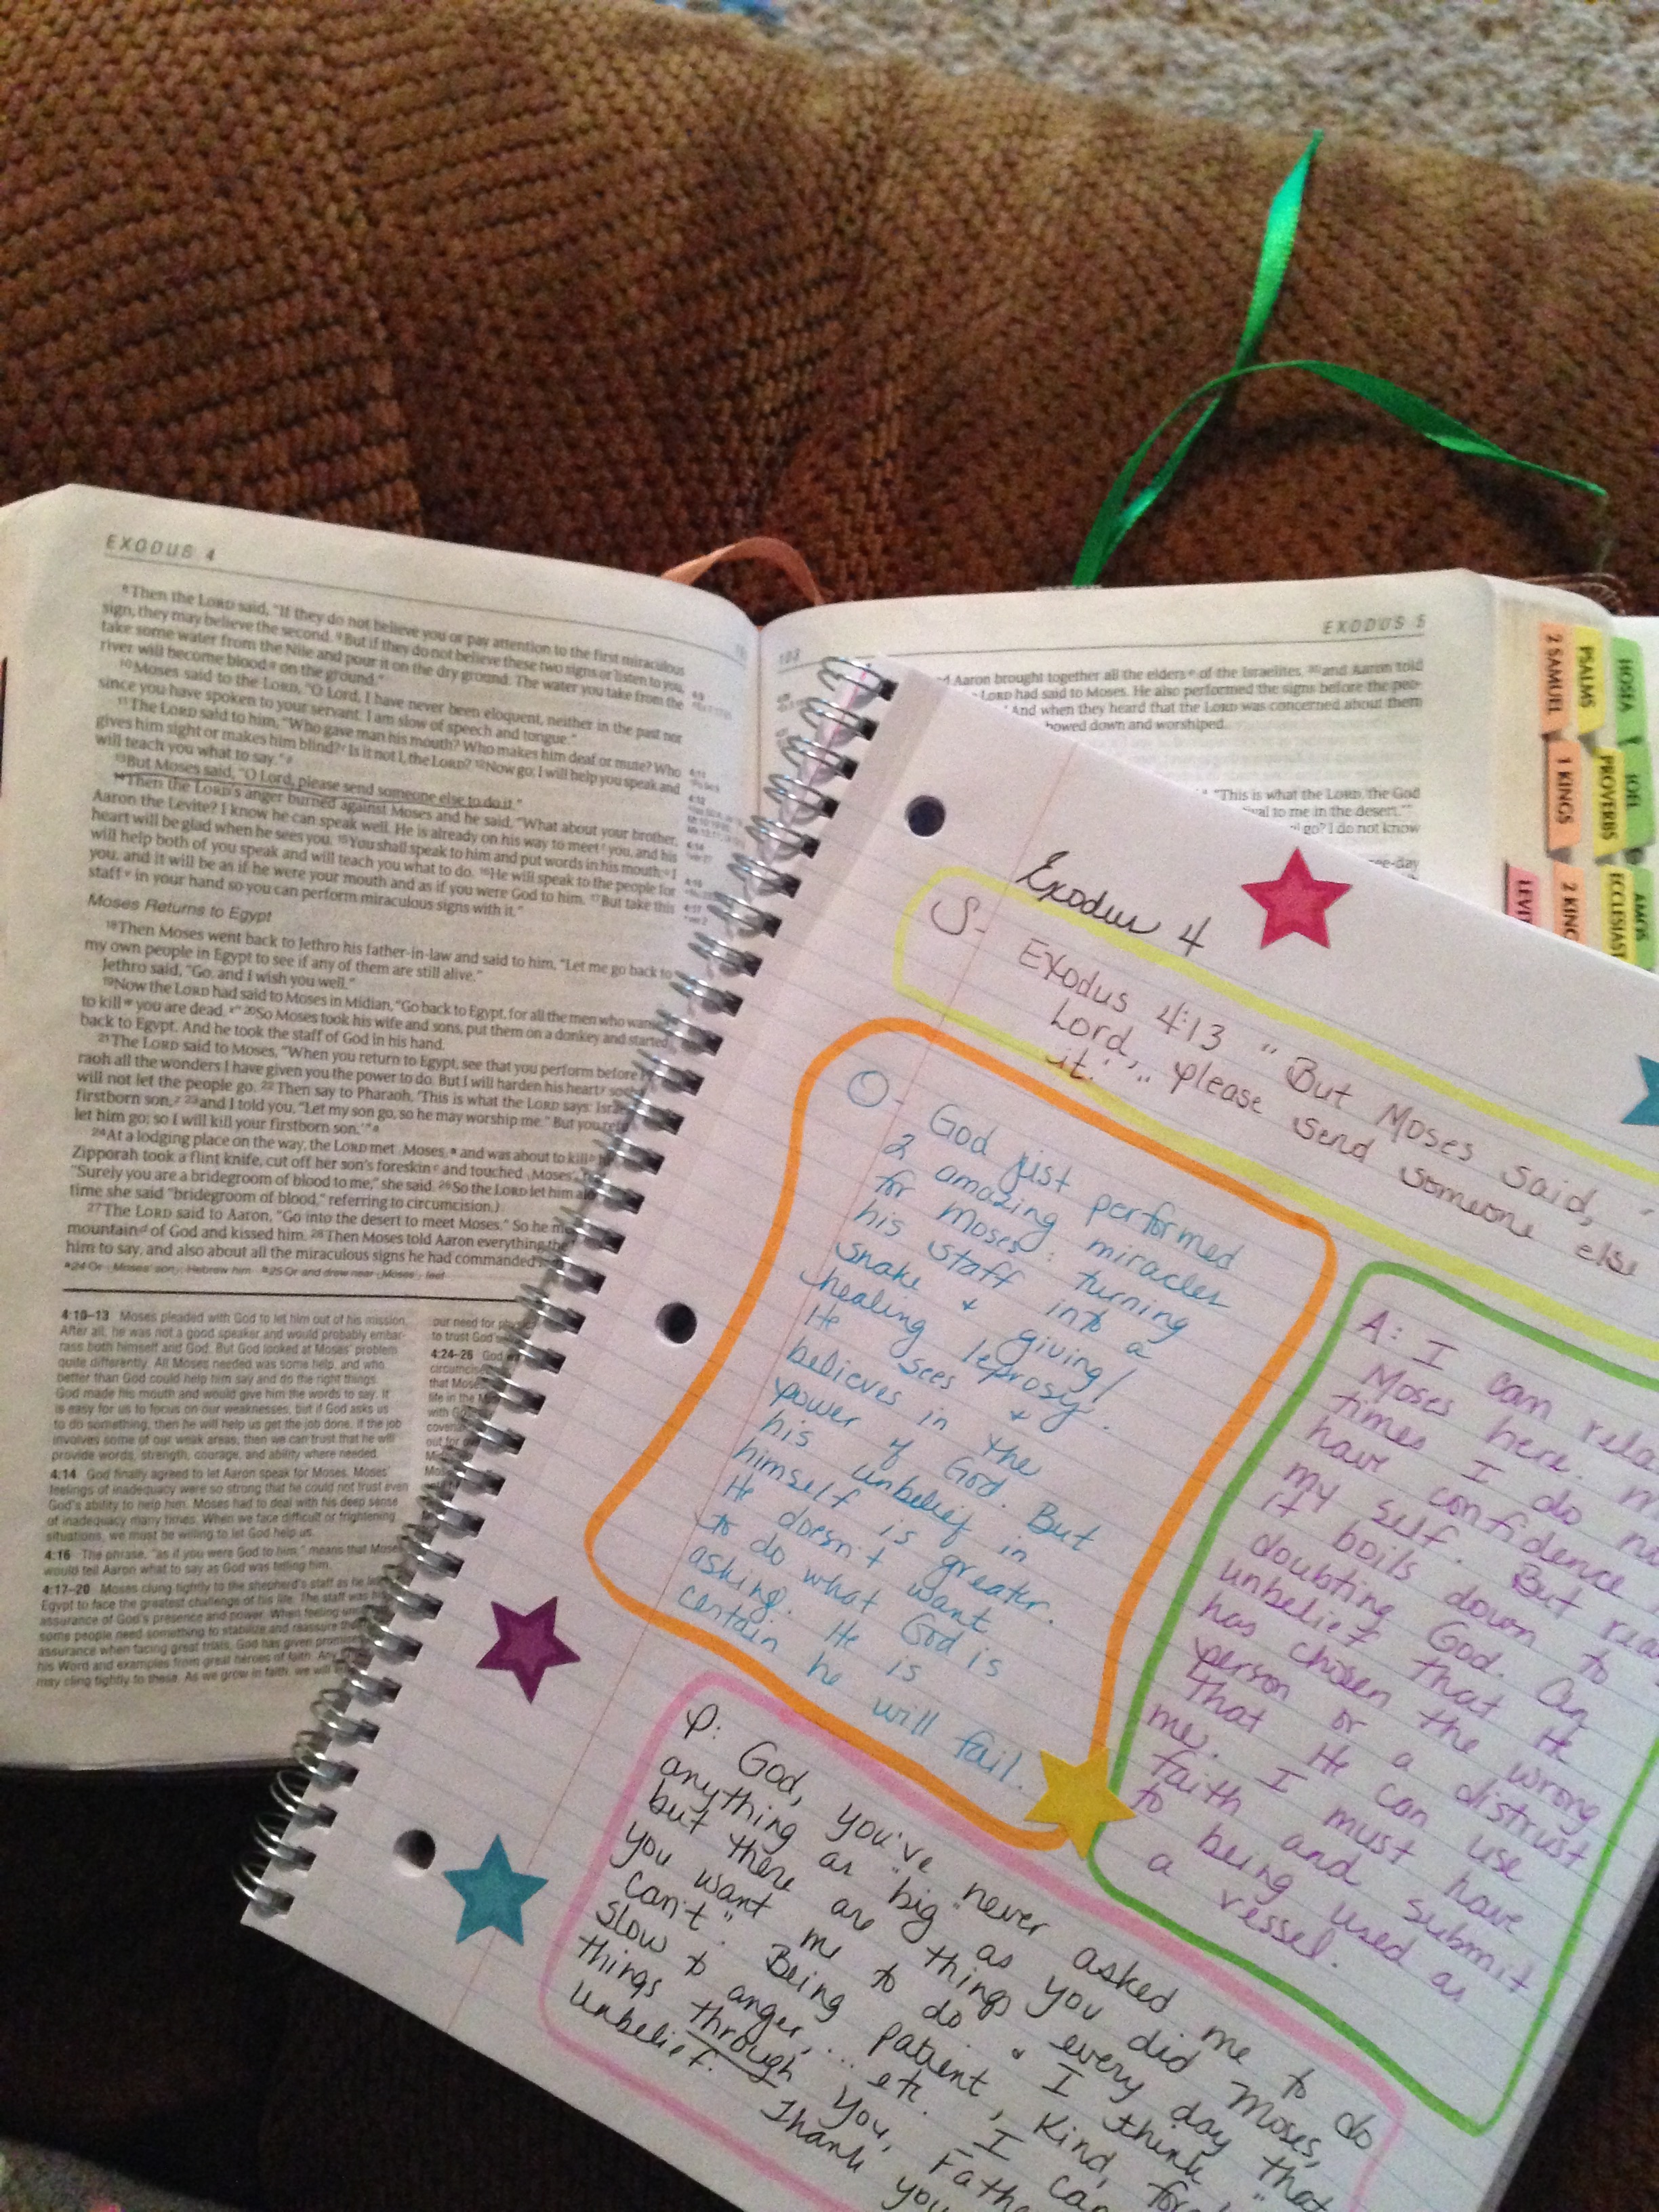 EXODUS 4
⁸Then the LORD said, "If they do not believe you or pay attention to the first miraculous
sign, they may believe the second. ⁹But if they do not believe these two signs or listen to you,
take some water from the Nile and pour it on the dry ground. The water you take from the
river will become blood on the ground."
¹⁰Moses said to the LORD, "O Lord, I have never been eloquent, neither in the past nor
since you have spoken to your servant. I am slow of speech and tongue."
¹¹The LORD said to him, "Who gave man his mouth? Who makes him deaf or mute? Who
gives him sight or makes him blind? Is it not I, the LORD? ¹²Now go; I will help you speak and
will teach you what to say."
¹³But Moses said, "O Lord, please send someone else to do it."
¹⁴Then the LORD's anger burned against Moses and he said, "What about your brother,
Aaron the Levite? I know he can speak well. He is already on his way to meet you, and his
heart will be glad when he sees you. ¹⁵You shall speak to him and put words in his mouth; I
will help both of you speak and will teach you what to do. ¹⁶He will speak to the people for
you, and it will be as if he were your mouth and as if you were God to him. ¹⁷But take this
staff in your hand so you can perform miraculous signs with it."
Moses Returns to Egypt
¹⁸Then Moses went back to Jethro his father-in-law and said to him, "Let me go back to
my own people in Egypt to see if any of them are still alive."
Jethro said, "Go, and I wish you well."
¹⁹Now the LORD had said to Moses in Midian, "Go back to Egypt, for all the men who wanted
to kill you are dead." ²⁰So Moses took his wife and sons, put them on a donkey and started
back to Egypt. And he took the staff of God in his hand.
²¹The LORD said to Moses, "When you return to Egypt, see that you perform before
raoh all the wonders I have given you the power to do. But I will harden his heart so
will not let the people go. ²²Then say to Pharaoh, 'This is what the LORD says:
firstborn son, ²³and I told you, "Let my son go, so he may worship me." But you
let him go; so I will kill your firstborn son.'"
²⁴At a lodging place on the way, the LORD met Moses, and was about to kill
Zipporah took a flint knife, cut off her son's foreskin and touched Moses'
"Surely you are a bridegroom of blood to me," she said. ²⁶So the LORD let him
time she said "bridegroom of blood," referring to circumcision.)
²⁷The LORD said to Aaron, "Go into the desert to meet Moses." So he
mountain of God and kissed him. ²⁸Then Moses told Aaron everything
him to say, and also about all the miraculous signs he had commanded
ᵃ24 Or Moses' son; Hebrew him ᵃ25 Or and drew near Moses' feet
4:10–13 Moses pleaded with God to let him out of his mission.
After all, he was not a good speaker and would probably embar-
rass both himself and God. But God looked at Moses' problem
quite differently. All Moses needed was some help, and who
better than God could help him say and do the right things.
God made his mouth and would give him the words to say. It
is easy for us to focus on our weaknesses, but if God asks us
to do something, then he will help us get the job done. If the job
involves some of our weak areas, then we can trust that he will
provide words, strength, courage, and ability where needed.
4:14 God finally agreed to let Aaron speak for Moses. Moses'
feelings of inadequacy were so strong that he could not trust even
God's ability to help him. Moses had to deal with his deep sense
of inadequacy many times. When we face difficult or frightening
situations, we must be willing to let God help us.
4:16 The phrase, "as if you were God to him," means that Moses
would tell Aaron what to say as God was telling him.
4:17–20 Moses clung tightly to the shepherd's staff as he
Egypt to face the greatest challenge of his life. The staff was
assurance of God's presence and power. When feeling
some people need something to stabilize and reassure
assurance when facing great trials, God has given
his Word and examples from great heroes of faith.
may cling tightly to these. As we grow in faith, we will
our need for
to trust God
4:24–26 God
that Moses
life in the
with
out for
103
EXODUS 5
Aaron brought together all the elders of the Israelites, and Aaron told
LORD had said to Moses. He also performed the signs before the peo-
And when they heard that the LORD was concerned about them
bowed down and worshiped.
"This is what the LORD, the God
val to me in the desert.'"
go? I do not know
ee-day
2 SAMUEL
1 KINGS
2 KING
LEVI
PSALMS
PROVERBS
ECCLESIAST
HOSEA
JOEL
AMOS
Exodus 4
S- Exodus 4:13 "But Moses said, "
Lord, please send someone else
it."
O- God just performed
2 amazing miracles
for Moses: turning
his staff into a
snake & giving/
healing leprosy.
He sees &
believes in the
power of God. But
his unbelief in
himself is greater.
He doesn't want
to do what God is
asking. He is
certain he will fail.
A: I can rela
Moses here. M
times I do no
have confidence
my self. But rea
it boils down to
doubting God. An
unbelief that He
has chosen the wrong
person or a distrust
that He can use
me. I must have
faith and submit
to being used as
a vessel.
P: God, you've never asked me to do
anything as "big" as you did Moses,
but there are things every day that
you want me to do & I think "
can't". Being patient, kind,
slow to anger, ... etc. I can
things through you, Fathe
unbelief. Thank you